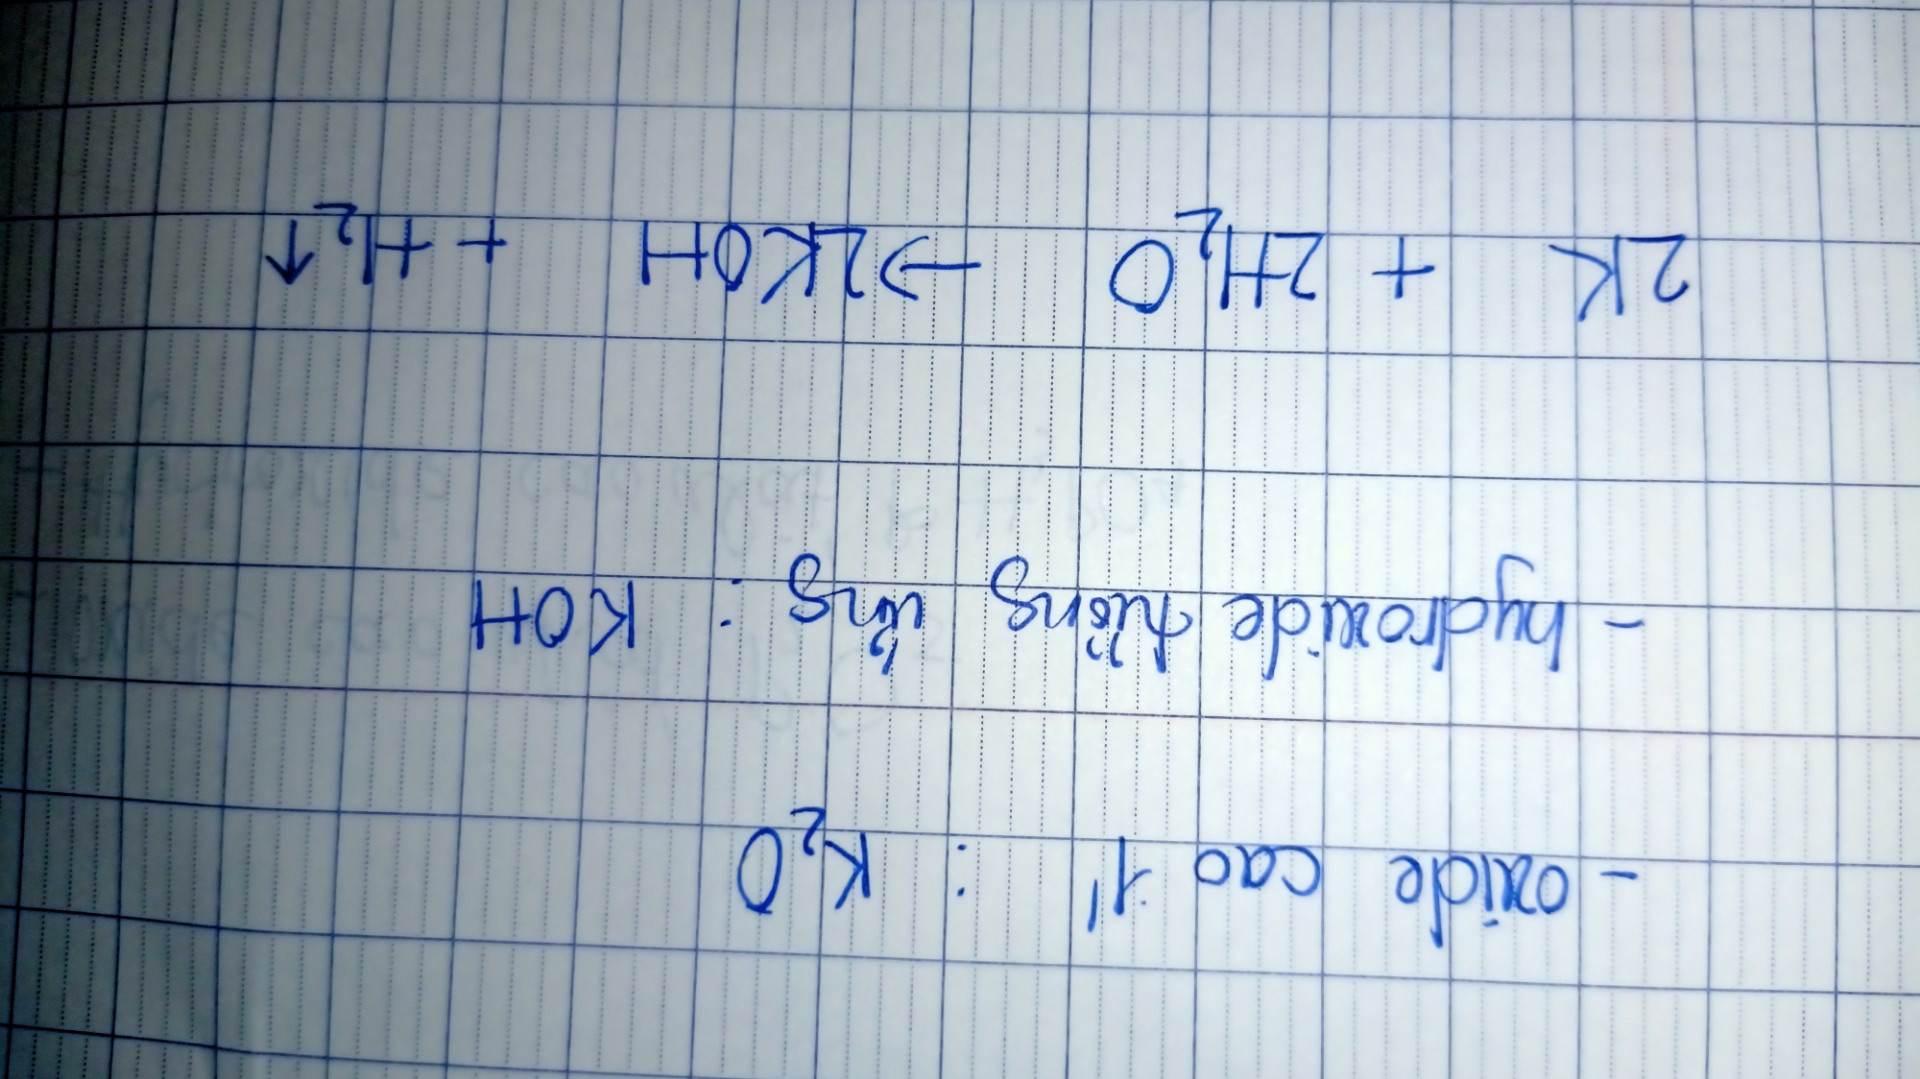 - oxide cao 1' : K₂O
- hydroxide tương ứng : KOH
2K + 2H₂O → 2KOH + H₂↑